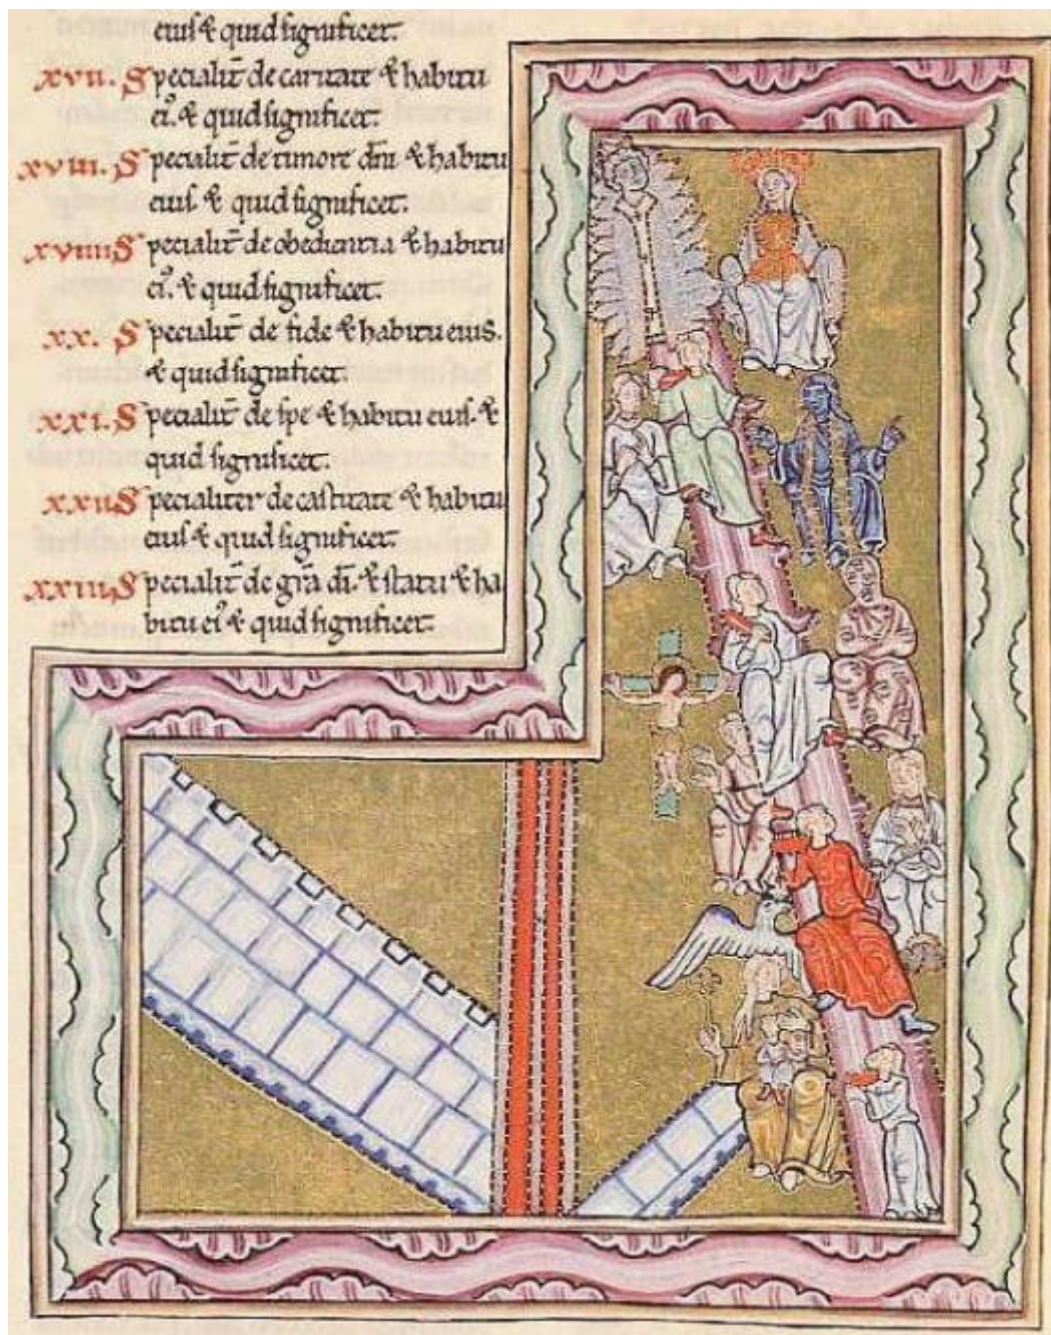 eius & quid significet.
xvii. Specialit̄ de caritate & habitu
ei᷒. & quid significet.
xviii. Specialit̄ de timore dn̄i & habitu
eius. & quid significet.
xviiii Specialit̄ de obedientia & habitu
ei᷒. & quid significet.
xx. Specialit̄ de fide & habitu eius.
& quid significet.
xxi. Specialit̄ de spe & habitu eius. &
quid significet.
xxii Specialiter de castitate & habitu
eius & quid significet.
xxiii Specialit̄ de gr̄a dī. & statu & ha
bitu ei᷒ & quid significet.